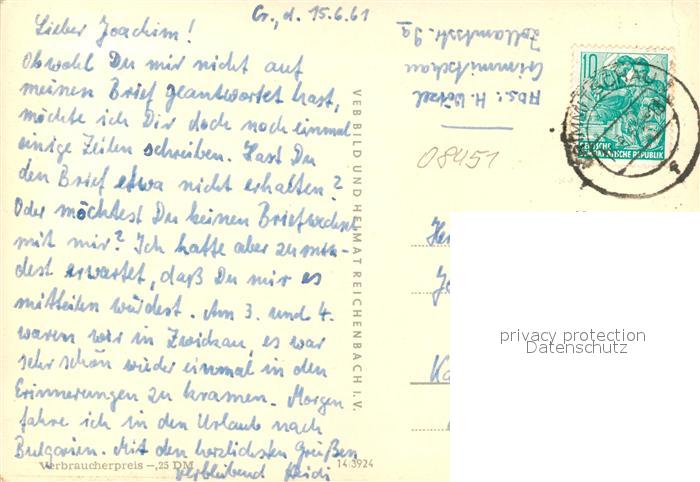 Cr., d. 15.6.61
Lieber Joachim!
Obwohl Du mir nicht auf
meinen Brief geantwortet hast,
möchte ich Dir doch noch einmal
einige Zeilen schreiben. Hast Du
den Brief etwa nicht erhalten?
Oder möchtest Du keinen Briefwechsel
mit mir? Ich hatte aber zumin-
dest erwartet, daß Du mir es
mitteilen würdest. Am 3. und 4.
waren wir in Zwickau, es war
sehr schön wieder einmal in den
Erinnerungen zu kramen. Morgen
fahre ich in den Urlaub nach
Bulgarien. Mit den herzlichsten Grüßen
verbleibend Heidi
Verbraucherpreis –,25 DM
14 3924
VEB BILD UND HEIMAT REICHENBACH I. V.
Abs.: H. Wötzel
Crimmitschau
Zollamtsstr. 9a
08451
10
DEUTSCHE
DEMOKRATISCHE REPUBLIK
privacy protection
Datenschutz